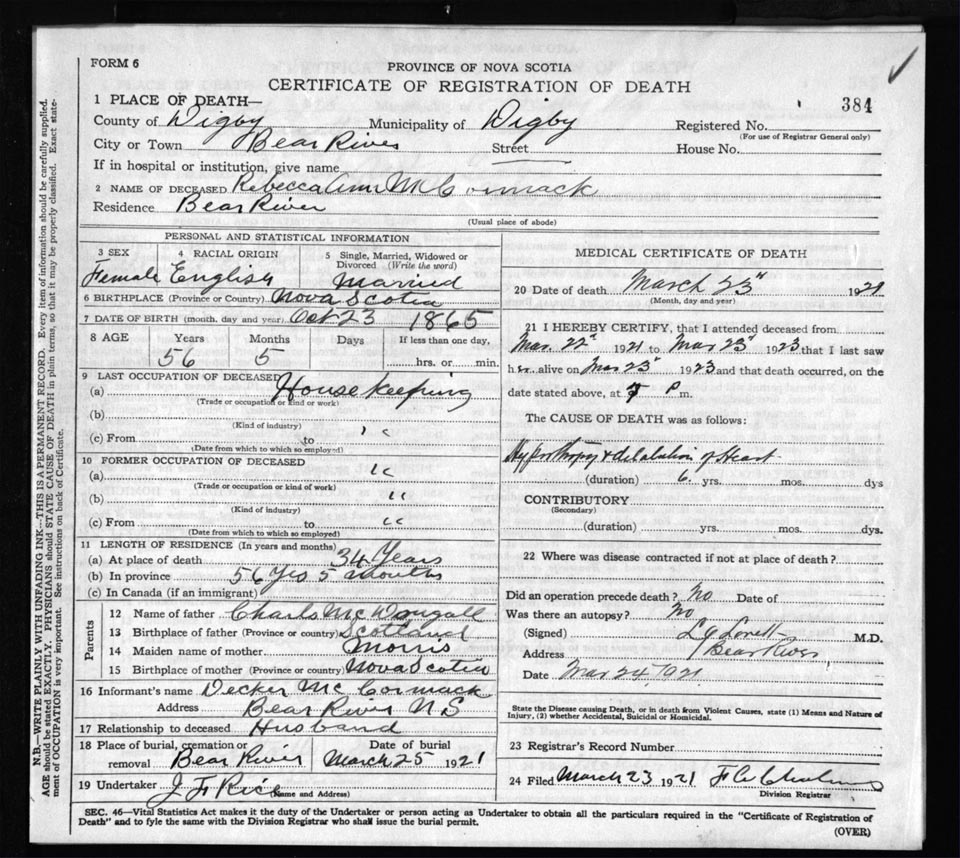 FORM 6
PROVINCE OF NOVA SCOTIA
CERTIFICATE OF REGISTRATION OF DEATH
384
1 PLACE OF DEATH—
County of Digby Municipality of Digby Registered No.
(For use of Registrar General only)
City or Town Bear River Street House No.
If in hospital or institution, give name
2 NAME OF DECEASED Rebecca Ann McCormack
Residence Bear River
(Usual place of abode)
PERSONAL AND STATISTICAL INFORMATION
3 SEX 4 RACIAL ORIGIN 5 Single, Married, Widowed or Divorced (Write the word)
Female English Married
6 BIRTHPLACE (Province or Country) Nova Scotia
7 DATE OF BIRTH (month, day and year) Oct 23 1865
8 AGE Years Months Days If less than one day,
56 5 hrs. or min.
9 LAST OCCUPATION OF DECEASED
(a) House Keeping
(Trade or occupation or kind or work)
(b)
(Kind of industry)
(c) From to "
(Date from which to which so employed)
10 FORMER OCCUPATION OF DECEASED
(a) "
(Trade or occupation or kind of work)
(b) "
(Kind of industry)
(c) From to "
(Date from which to which so employed)
11 LENGTH OF RESIDENCE (In years and months)
(a) At place of death 34 Years
(b) In province 56 Yrs 5 months
(c) In Canada (if an immigrant)
Parents
12 Name of father Charls McDougall
13 Birthplace of father (Province or country) Scotland
14 Maiden name of mother Morris
15 Birthplace of mother (Province or country) Nova Scotia
16 Informant's name Decker McCormack
Address Bear River N S
17 Relationship to deceased Husband
18 Place of burial, cremation or removal Bear River Date of burial March 25 1921
19 Undertaker J F Rice
(Name and Address)
MEDICAL CERTIFICATE OF DEATH
20 Date of death March 23" 1921
(Month, day and year)
21 I HEREBY CERTIFY, that I attended deceased from
Mar. 22" 1921 to Mar 23" 1923 that I last saw
her alive on Mar 23" 1923 and that death occurred, on the
date stated above, at 7 P m.
The CAUSE OF DEATH was as follows:
Hyperthropy & dilalation of Heart
(duration) 6 yrs. mos. dys
CONTRIBUTORY
(Secondary)
(duration) yrs. mos. dys.
22 Where was disease contracted if not at place of death?
Did an operation precede death? No Date of
Was there an autopsy? No
(Signed) L J Lovett M.D.
Address Bear River
Date Mar 24, 1921
State the Disease causing Death, or in death from Violent Causes, state (1) Means and Nature of
Injury, (2) whether Accidental, Suicidal or Homicidal.
23 Registrar's Record Number
24 Filed March 23 1921
Division Registrar
SEC. 46—Vital Statistics Act makes it the duty of the Undertaker or person acting as Undertaker to obtain all the particulars required in the "Certificate of Registration of
Death" and to fyle the same with the Division Registrar who shall issue the burial permit.
(OVER)
N.B.—WRITE PLAINLY WITH UNFADING INK—THIS IS A PERMANENT RECORD. Every item of information should be carefully supplied.
AGE should be stated EXACTLY. PHYSICIANS should STATE CAUSE OF DEATH in plain terms, so that it may be properly classified. Exact state-
ment of OCCUPATION is very important. See instructions on back of Certificate.